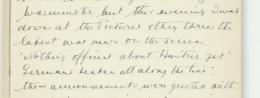 Warminster but this evening I was
down at the Pictures & they threw the
latest war news on the screen.
"Nothing official about Austria yet"
Germans beaten all along the line"
these announcements were greeted with